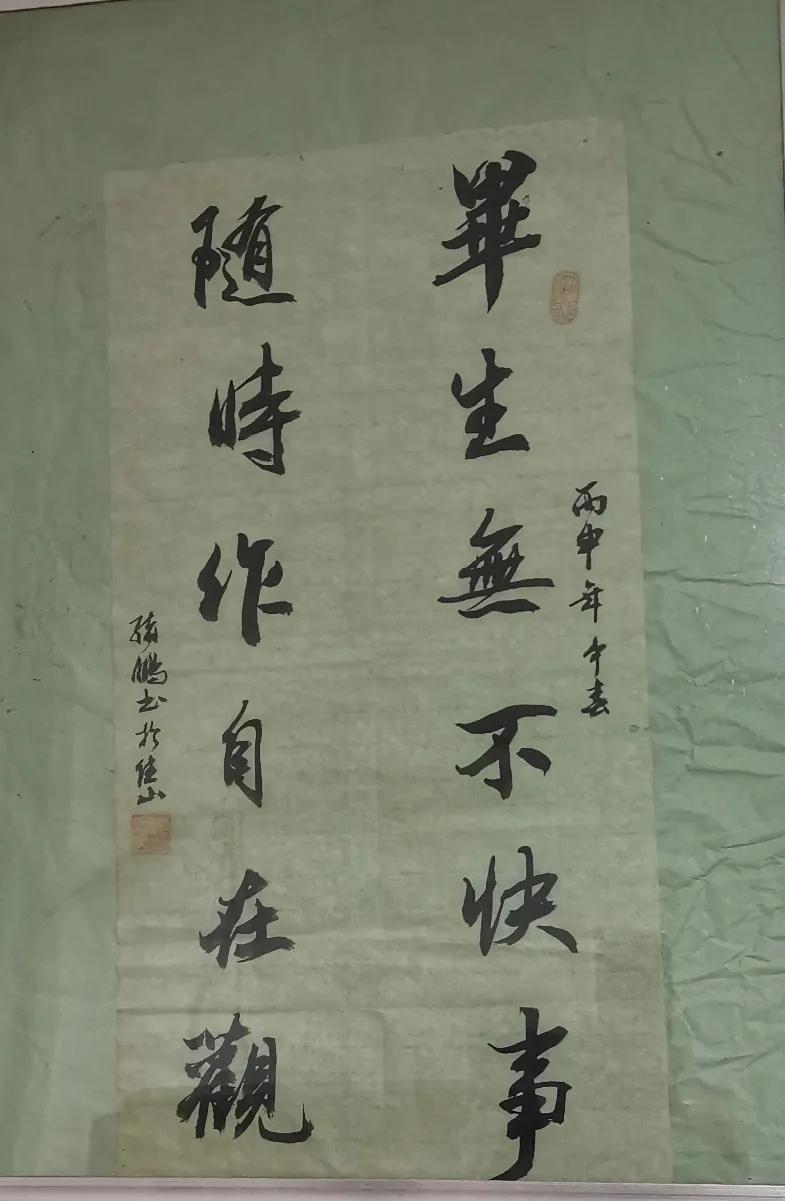 丙申年中春
畢生無不快事
隨時作自在觀
鵬書於佳山